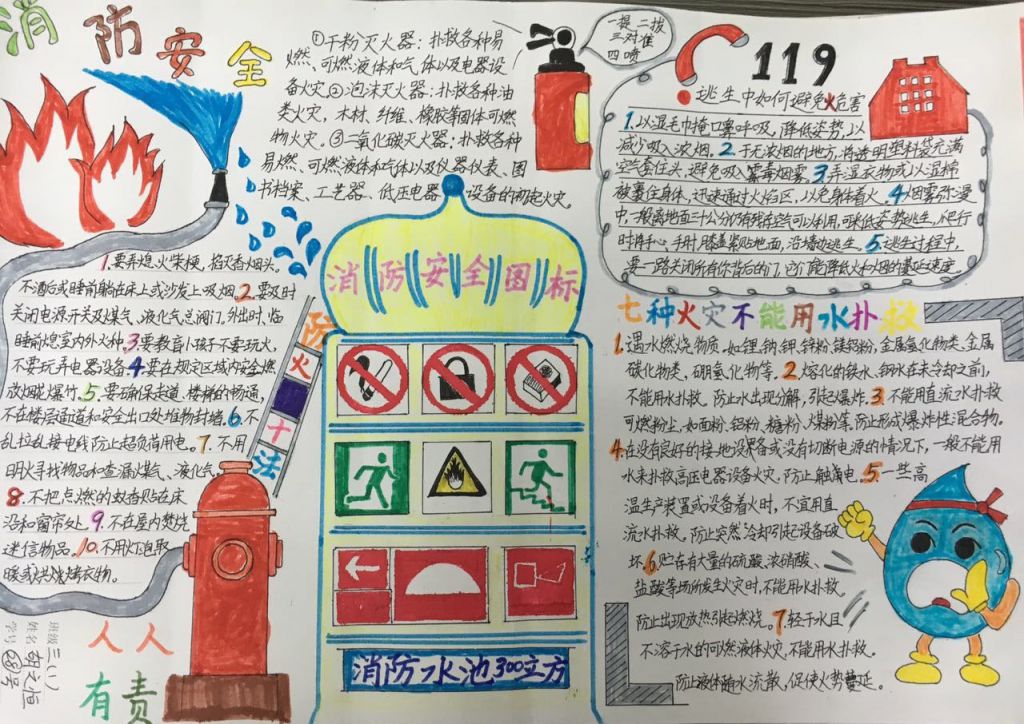 消防安全
①干粉灭火器：扑救各种易
燃、可燃液体和气体以及电器设
备火灾。②泡沫灭火器：扑救各种油
类火灾，木材、纤维、橡胶等固体可燃
物火灾。③二氧化碳灭火器：扑救各种
易燃、可燃液体和气体以及仪器仪表、图
书档案、工艺器、低压电器设备的初起火灾。
一提二拔
三对准
四喷
119
逃生中如何避免火危害
1.以湿毛巾掩口鼻呼吸，降低姿势，以
减少吸入浓烟。2.于无浓烟的地方，将透明塑料袋充满
空气套住头，避免吸入有毒烟雾。3.弄湿衣物或以湿棉
被裹住身体，迅速通过火焰区，以免身体着火。4.烟雾弥漫
中，一般离地面三十公分仍有残存空气可以利用，可采低姿势逃生，爬行
时将手心、手肘、膝盖紧贴地面，沿墙边逃生。5.逃生过程中，
要一路关闭所有你背后的门，它们能降低火和烟的蔓延速度。
防火十法
1.要弄熄火柴梗，掐灭香烟头。
不酒后或睡前躺在床上或沙发上吸烟。2.要及时
关闭电源开关及煤气、液化气总阀门。外出时、临
睡前熄室内外火种。3.要教育小孩子不要玩火，
不要玩弄电器设备。4.要在规定区域内安全燃
放烟花爆竹。5.要确保走道、楼梯的畅通，
不在楼层通道和安全出口处堆物封堵。6.不
乱拉乱接电线防止超负荷用电。7.不用
明火寻找物品和查漏煤气、液化气
8.不把点燃的蚊香贴在床
沿和窗帘处。9.不在屋内焚烧
迷信物品。10.不用灯泡取
暖或烘烤衣物。
消防安全图标
消防水池300立方
七种火灾不能用水扑救
1.遇水燃烧物质，如锂、钠、钾、锌粉、镁铝粉，金属氢化物类、金属
碳化物类，硼氢化物等。2.熔化的铁水、钢水在未冷却之前，
不能用水扑救。防止水出现分解，引起爆炸。3.不能用直流水扑救
可燃粉上，如面粉、铝粉、糖粉、煤粉等，防止形成爆炸性混合物。
4.在没有良好的接地设备或没有切断电源的情况下，一般不能用
水来扑救高压电器设备火灾，防止触电。5.一些高
温生产装置或设备着火时，不宜用直
流水扑救。防止突然冷却引起设备破
坏。6.贮存有大量的硫酸、浓硝酸、
盐酸等场所发生火灾时，不能用水扑救。
防止出现放热引起燃烧。7.轻于水且
不溶于水的可燃液体火灾，不能用水扑救。
防止液体随水流散，促使火势蔓延。
人人
有责
班级三(1)
姓名胡文恒
学号28号